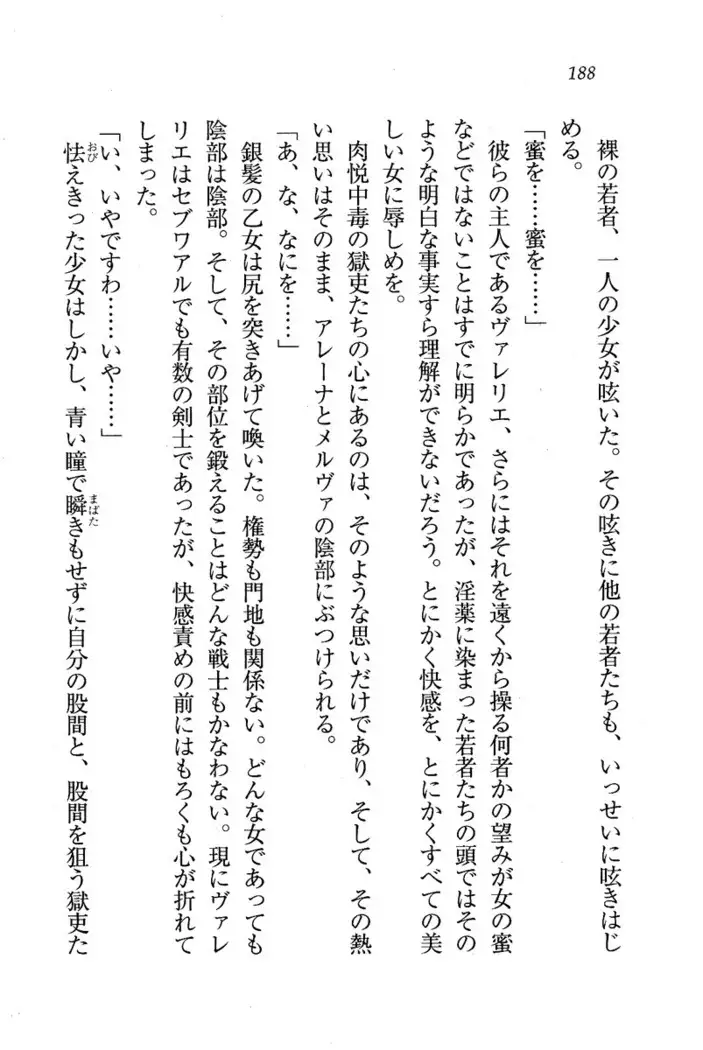 188
裸の若者、一人の少女が呟いた。その呟きに他の若者たちも、いっせいに呟きはじ
める。
「蜜を……蜜を……」
彼らの主人であるヴァレリエ、さらにはそれを遠くから操る何者かの望みが女の蜜
などではないことはすでに明らかであったが、淫薬に染まった若者たちの頭ではその
ような明白な事実すら理解ができないだろう。とにかく快感を、とにかくすべての美
しい女に辱しめを。
肉悦中毒の獄吏たちの心にあるのは、そのような思いだけであり、そして、その熱
い思いはそのまま、アレーナとメルヴァの陰部にぶつけられる。
「あ、な、なにを……」
銀髪の乙女は尻を突きあげて喚いた。権勢も門地も関係ない。どんな女であっても
陰部は陰部。そして、その部位を鍛えることはどんな戦士もかなわない。現にヴァレ
リエはセブワアルでも有数の剣士であったが、快感責めの前にはもろくも心が折れて
しまった。
「い、いやですわ……いや……」
怯えきった少女はしかし、青い瞳で瞬きもせずに自分の股間と、股間を狙う獄吏た
おび
まばた